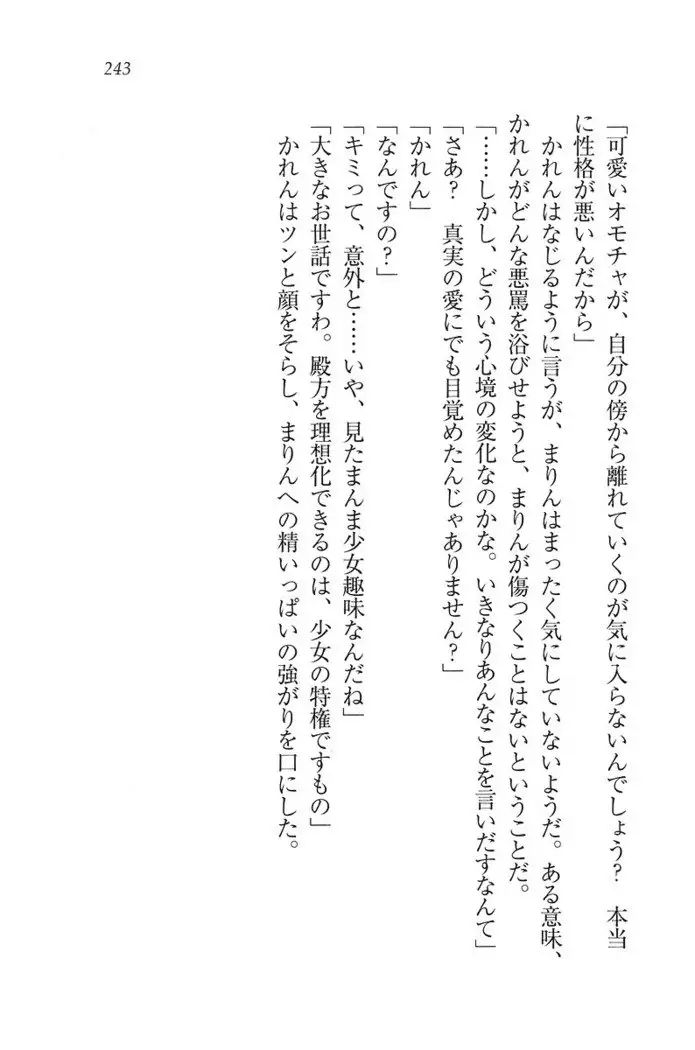 243
「可愛いオモチャが、自分の傍から離れていくのが気に入らないんでしょう?　本当
に性格が悪いんだから」
　かれんはなじるように言うが、まりんはまったく気にしていないようだ。ある意味、
かれんがどんな悪罵を浴びせようと、まりんが傷つくことはないということだ。
「……しかし、どういう心境の変化なのかな。いきなりあんなことを言いだすなんて」
「さあ?　真実の愛にでも目覚めたんじゃありません?」
「かれん」
「なんですの?」
「キミって、意外と……いや、見たまんま少女趣味なんだね」
「大きなお世話ですわ。殿方を理想化できるのは、少女の特権ですもの」
　かれんはツンと顔をそらし、まりんへの精いっぱいの強がりを口にした。